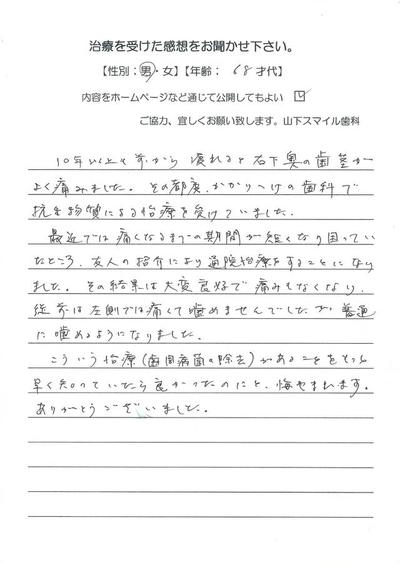 治療を受けた感想をお聞かせ下さい。
【性別：男・女】【年齢： 68才代】
内容をホームページなど通じて公開してもよい ☑
ご協力、宜しくお願い致します。山下スマイル歯科
10年以上も前から 疲れると右下奥の歯茎が
よく痛みました。その都度、かかりつけの歯科で
抗生物質による治療を受けていました。
最近では痛くなるまでの期間が短くなり困ってい
たところ、友人の紹介により通院治療をすることになり
ました。その結果は大変良好で痛みもなくなり、
従前は左側では痛くて噛めませんでしたが、普通
に噛めるようになりました。
こういう治療(歯周病菌の除去)があることをもっと
早く知っていたら良かったのにと、悔やまれます。
ありがとうございました。